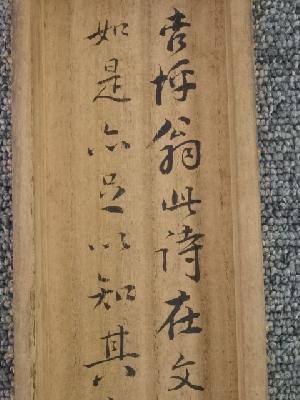 杏坪翁此詩在文
如是亦足以知其